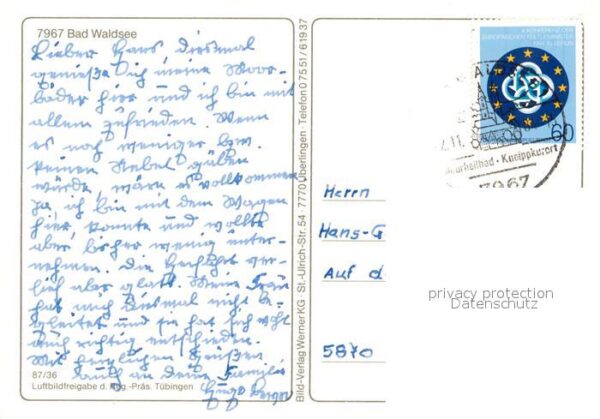 7967 Bad Waldsee
Lieber Hans, diesmal
genieße ich meine Moor-
bäder hier und ich bin mit
allem zufrieden. Wenn
es noch weniger bzw.
keinen Nebel geben
würde, wäre es vollkommen
Ja ich bin mit dem Wagen
hier, konnte und wollte
aber bisher wenig unter-
nehmen. Die Herfahrt ver-
lief aber glatt. Meine Frau
hat mich diesmal nicht be-
gleitet und sie hat sich wohl
auch richtig entschieden.
Mit herzlichen Grüßen
auch an deine Familie
Hugo Berger
87/36
Luftbildfreigabe d. Reg.-Präs. Tübingen
Bild-Verlag Werner KG St.-Ulrich-Str. 54 · 7770 Überlingen · Telefon 0 75 51 / 6 19 37
4. KONFERENZ DER
EUROPÄISCHEN KULTURMINISTER
BERLIN
60
Kneippkurort
7967
Herrn
Hans-G
Auf d
5870
privacy protection
Datenschutz